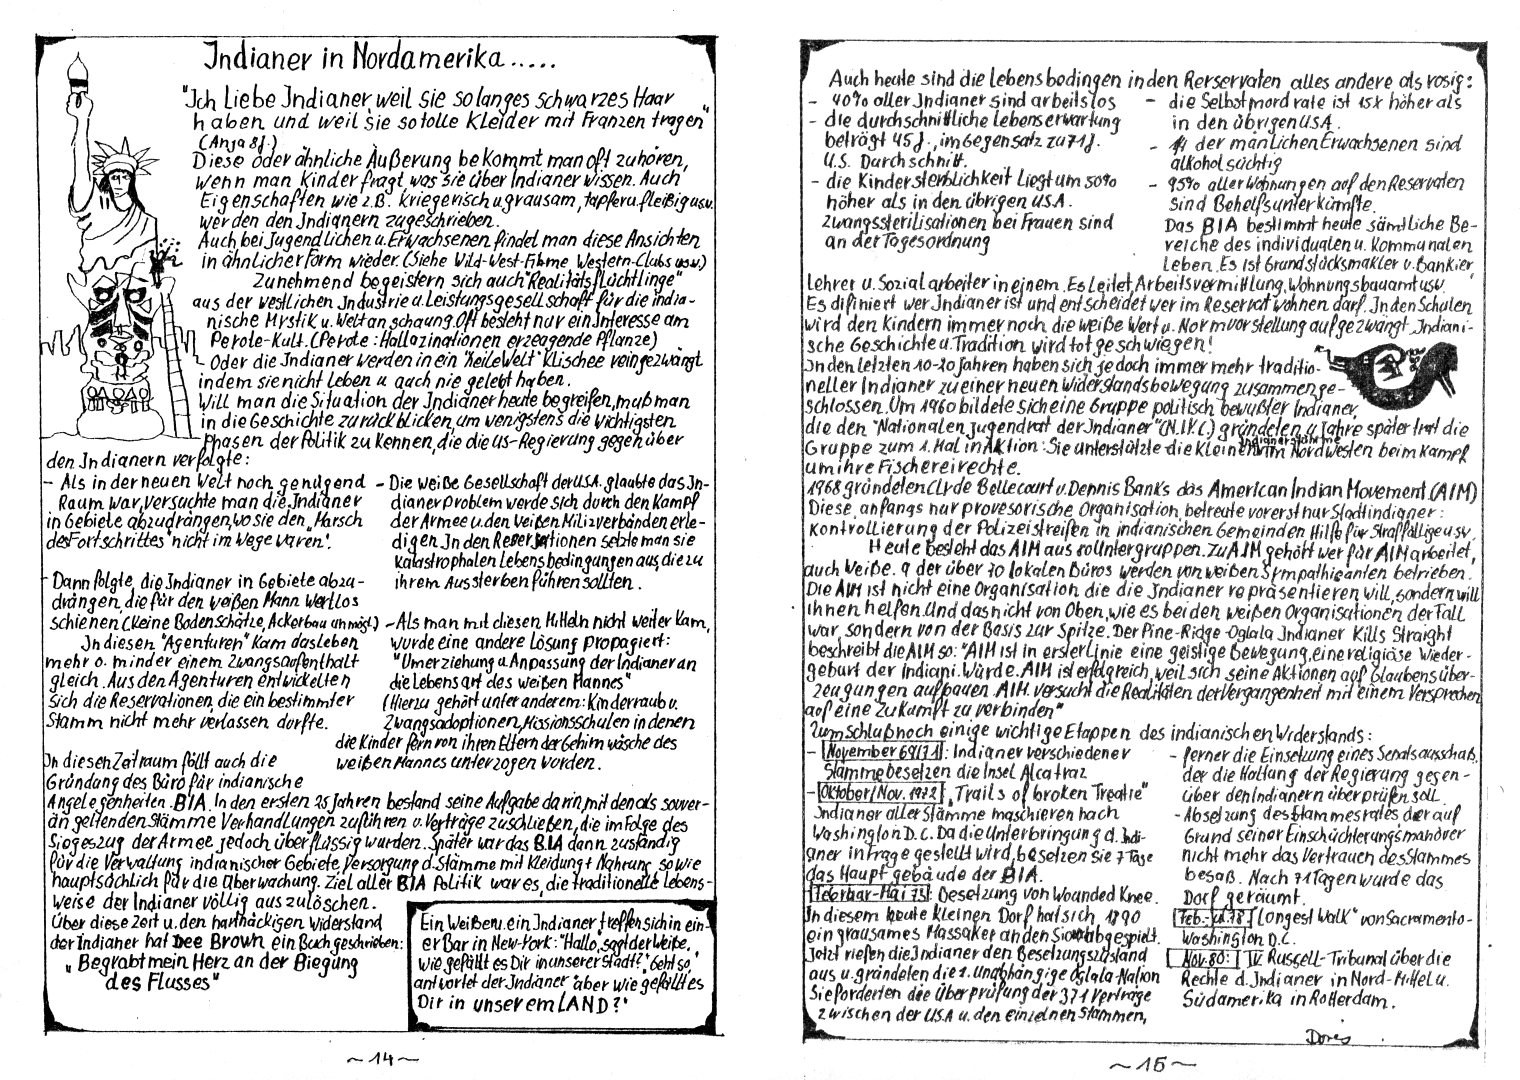 Indianer in Nordamerika.....
"Ich Liebe Indianer, weil sie so langes schwarzes Haar
haben und weil sie so tolle Kleider mit Franzen tragen"
(Anja 8J.)
Diese oder ähnliche Äußerung bekommt man oft zu hören,
wenn man Kinder fragt, was sie über Indianer wissen. Auch
Eigenschaften wie z.B. Kriegerisch u. grausam, tapfer u. fleißig usw.
werden den Indianern zugeschrieben.
Auch bei Jugendlichen u. Erwachsenen findet man diese Ansichten
in ähnlicher Form wieder. (Siehe Wild-West-Filme Western-Clubs usw.)
Zunehmend begeistern sich auch "Realitätsflüchtlinge"
aus der westlichen Industrie u. Leistungsgesellschaft für die india-
nische Mystik u. Weltanschaung. Oft besteht nur ein Interesse am
Peyote-Kult. (Peyote: Hallozinationen erzeugende Pflanze)
Oder die Indianer werden in ein "heile Welt" Klischee reingezwängt
indem sie nicht Leben u. auch nie gelebt haben.
Will man die Situation der Indianer heute begreifen, muß man
in die Geschichte zurückblicken, um wenigstens die wichtigsten
Phasen der Politik zu Kennen, die die US-Regierung gegenüber
den Indianern verfolgte:
- Als in der neuen Welt noch genügend
Raum war, versuchte man die Indianer
in Gebiete abzudrängen, wo sie den "Marsch
des Fortschrittes" nicht im Wege waren.
Dann folgte, die Indianer in Gebiete abzu-
drängen, die für den weißen Mann Wertlos
schienen (Keine Bodenschätze, Ackerbau unmögl.)
In diesen "Agenturen" Kam das leben
mehr o. minder einem Zwangsaufenthalt
gleich. Aus den Agenturen entwickelten
sich die Reservationen, die ein bestimmter
Stamm nicht mehr verlassen durfte.
- Die weiße Gesellschaft der USA. glaubte das In-
dianerproblem werde sich durch den Kampf
der Armee u. den weißen Milizverbänden erle-
digen. In den Reservationen setzte man sie
Katastrophalen Lebensbedingungen aus, die zu
ihrem Aussterben führen sollten.
- Als man mit diesen Mitteln nicht weiter Kam,
wurde eine andere Lösung propagiert:
"Umerziehung u. Anpassung der Indianer an
die Lebensart des weißen Mannes"
(Hierzu gehört unter anderem: Kinderraub u.
Zwangsadoptionen, Missionsschulen in denen
die Kinder fern von ihren Eltern der Gehirnwäsche des
weißen Mannes unterzogen wurden.
In diesen Zeitraum fällt auch die
Gründung des Büro für indianische
Angelegenheiten. BIA. In den ersten 25 Jahren bestand seine Aufgabe darin, mit den als souver-
än geltenden Stämme Verhandlungen zuführen u. Verträge zuschließen, die im Folge des
Siegeszug der Armee jedoch überflüssig wurden. Später war das BIA dann zuständig
für die Verwaltung indianischer Gebiete, Versorgung d. Stämme mit Kleidung + Nahrung sowie
hauptsächlich für die Überwachung. Ziel aller BIA Politik war es, die traditionelle Lebens-
weise der Indianer völlig auszulöschen.
Über diese Zeit u. den hartnäckigen Widerstand
der Indianer hat Dee Brown ein Buch geschrieben:
"Begrabt mein Herz an der Biegung
des Flusses"
Ein Weißer u. ein Indianer treffen sich in ein-
er Bar in New-York: "Hallo, sagt der Weiße,
wie gefällt es Dir in unserer Stadt?" "Geht so,"
antwortet der Indianer "aber wie gefällt es
Dir in unserem LAND?"
~14~
Auch heute sind die Lebensbedingen in den Rerservaten alles andere als rosig:
- 40% aller Indianer sind arbeitslos
- die durchschnittliche Lebenserwartung
beträgt 45 J., im Gegensatz zu 71 J.
U.S. Durchschnitt.
- die Kindersterblichkeit Liegt um 50%
höher als in den übrigen USA.
Zwangssterilisationen bei Frauen sind
an der Tagesordnung
- die Selbstmordrate ist 15x höher als
in den übrigen USA.
- 1/4 der mänlichen Erwachsenen sind
alkoholsüchtig
- 95% aller Wohnungen auf den Reservaten
sind Behelfsunterkünfte.
Das BIA bestimmt heute sämtliche Be-
reiche des individualen u. Kommunalen
Leben. Es ist Grundstücksmakler u. Bankier,
Lehrer u. Sozialarbeiter in einem. Es Leitet, Arbeitsvermittlung, Wohnungsbauamt usw.
Es difiniert wer Indianer ist und entscheidet wer im Reservat wohnen darf. In den Schulen
wird den Kindern immer noch die weiße Wert u. Normvorstellung aufgezwängt. Indiani-
sche Geschichte u. Tradition wird totgeschwiegen!
In den Letzten 10-20 Jahren haben sich jedoch immer mehr traditio-
neller Indianer zu einer neuen Widerstandsbewegung zusammenge-
schlossen. Um 1960 bildete sich eine Gruppe politisch bewußter Indianer,
die den "Nationalen Jugendrat der Indianer" (N.I.Y.C.) gründeten. 4 Jahre später trat die
Gruppe zum 1. Mal in Aktion: Sie unterstützte die Kleinen Indianerstämme im Nordwesten beim Kampf
um ihre Fischereirechte.
1968 gründeten Clyde Bellecourt u. Dennis Banks das American Indian Movement (AIM)
Diese, anfangs nur provesorische Organisation betreute vorerst nur Stadtindianer:
Kontrollierung der Polizeistreifen in indianischen Gemeinden Hilfe für Straffällige usw.
Heute besteht das AIM aus 70 Untergruppen. Zu AIM gehört wer für AIM arbeitet,
auch Weiße. 9 der über 70 lokalen Büros werden von weißen Sympathisanten betrieben.
Die AIM ist nicht eine Organisation die die Indianer repräsentieren will, sondern will
ihnen helfen. Und das nicht von Oben, wie es bei den weißen Organisationen der Fall
war, sondern von der Basis zur Spitze. Der Pine-Ridge-Oglala Indianer Kills Straight
beschreibt die AIM so: "AIM ist in erster Linie eine geistige Bewegung, eine religiöse Wieder-
geburt der Indiani. Würde. AIM ist erfolgreich, weil sich seine Aktionen auf Glaubensüber-
zeugungen aufbauen. AIM. versucht die Realitäten der Vergangenheit mit einem Versprechen
auf eine Zukunft zu verbinden"
Zum Schluß noch einige wichtige Etappen des indianischen Widerstands:
- November 69/71: Indianer verschiedener
Stämme besetzen die Insel Alcatraz
- Oktober/Nov. 1972 "Trails of broken Treatie"
Indianer aller Stämme maschieren nach
Washington D.C. Da die Unterbringung d. Indi-
aner infrage gestellt wird, besetzen sie 7 Tage
das Hauptgebäude der BIA.
Februar-Mai 73: Besetzung von Wounded Knee.
In diesem heute Kleinen Dorf hat sich 1890
ein grausames Massaker an den Sioux abgespielt.
Jetzt riefen die Indianer den Besetzungszustand
aus u. gründeten die 1. Unabhängige Oglala-Nation
Sie forderten die Überprüfung der 371 Verträge
zwischen der USA u. den einzelnen Stämmen,
- ferner die Einsetzung eines Senatsausschuß,
der die Haltung der Regierung gegen-
über den Indianern überprüfen soll.
- Absetzung des Stammesrates der auf
Grund seiner Einschüchterungsmanöver
nicht mehr das Vertrauen des Stammes
besaß. Nach 71 Tagen wurde das
Dorf geräumt.
Feb.- 78: "Longest Walk" von Sacramento-
Washington D.C.
Nov. 80: IV. Russell-Tribunal über die
Rechte d. Indianer in Nord-Mittel u.
Südamerika in Rotterdam.
Doris
~15~